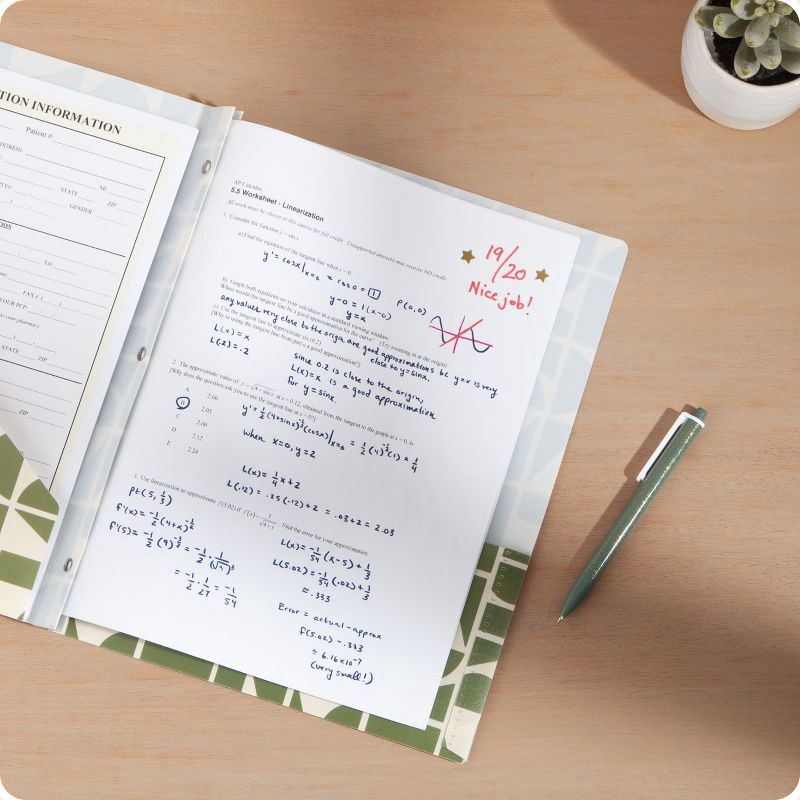 TION INFORMATION
Patient #:
ADDRESS:
MI
STATE
ZIP
GENDER
FAX # ( )
YOUR PCP
STATE
ZIP
ZIP
AP Calculus
5.5 Worksheet - Linearization
All work must be shown in this course for full credit. Unsupported answers may receive NO credit.
19/20
Nice job!
1. Consider the function y = sin x.
a) Find the equation of the tangent line when x = 0.
y' = cosx|x=0 = cos0 = 1
y-0 = 1(x-0)
P(0,0)
y=x
b) Graph both equations on your calculator in a standard viewing window.
When would the tangent line be a good approximation for the curve? (Try zooming in at the origin)
any values very close to the origin are good approximations bc y=x is very
close to y=sinx.
c) Use the tangent line to approximate sin (0.2).
[Why is using the tangent line from part a a good approximation?]
L(x) = x
L(.2) = .2
since 0.2 is close to the origin,
L(x)=x is a good approximation
for y=sinx.
2. The approximate value of y = √4 + sin x at x = 0.12, obtained from the tangent to the graph at x = 0, is
[Why does the question ask you to use the tangent line at x = 0?]
A 2.00
B 2.03
C 2.06
D 2.12
E 2.24
y' = 1/2 (4+sinx)^-1/2 (cosx)|x=0 = 1/2 (4)^-1/2 (1) = 1/4
when x=0, y=2
L(x) = 1/4 x + 2
L(.12) = .25(.12)+2 = .03+2 = 2.03
3. Use linearization to approximate f(5.02) if f(x) = 1/√4+x. Find the error for your approximation.
pt (5, 1/3)
f'(x) = -1/2 (4+x)^-3/2
f'(5) = -1/2 (9)^-3/2 = -1/2 · 1/(√9)^3
= -1/2 · 1/27 = -1/54
L(x) = -1/54 (x-5) + 1/3
L(5.02) = -1/54 (.02) + 1/3
≈ .333
Error = actual - approx
f(5.02) - .333
≈ 6.16x10^-7
(very small!)